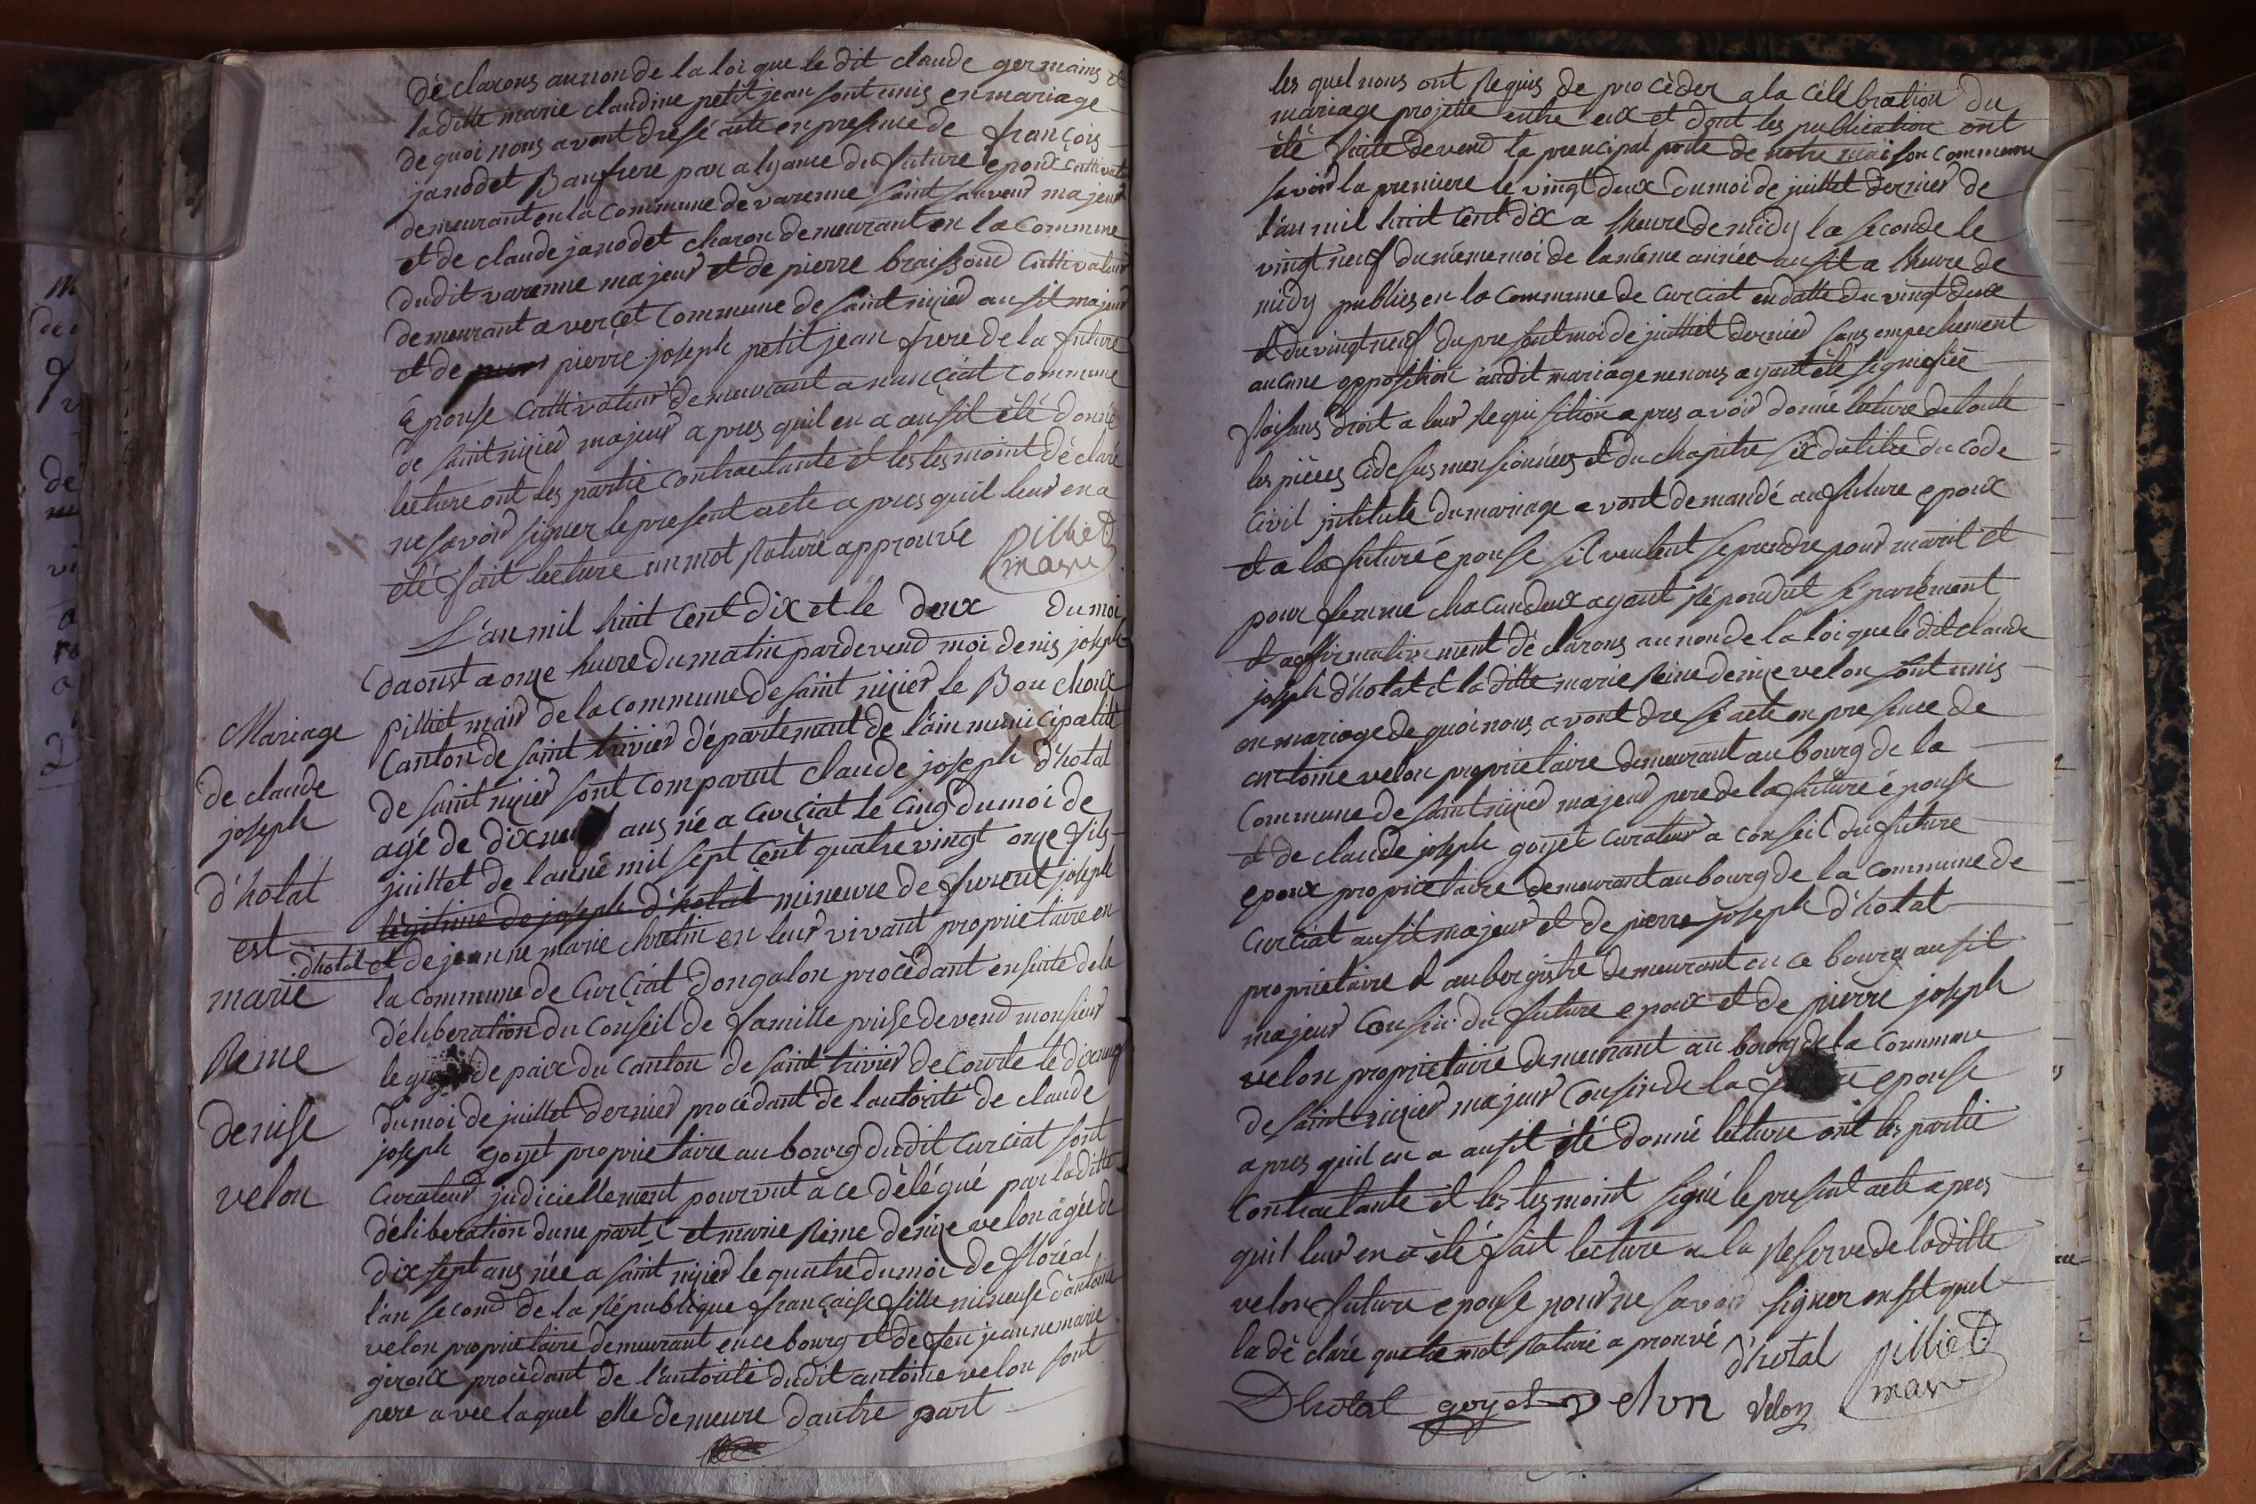 déclarons au non de la loi que le dit claude germains et
la ditte marie claudine petit jean sont unis en mariage
de quoi nous avont dresé acte en presence de françois
janodet Baufrere par alyance du future époux cultivateur
demeurant en la commune de varenne saint sauveur majeur
et de claude janodet charon demeurant en la commune
dudit varenne majeur et de pierre braissoud cultivateur
demeurant a verçet commune de saint nizier ausit majeur
et de pierre joseph petit jean frere de la future
épouse cultivateur demeurant a nanciat commune
de saint nizier majeur apres quil en a ausit été donné
lecture ont les partie contractante et les tesmoint déclaré
ne savoir signer le present acte apres quil leur en a
été fait lecture un mot rature approuvée pilliet
maire
L'an mil huit cent dix et le deux du moi
daoust a onze heure du matin pardevend moi denis joseph
pilliet maire de la commune de saint nizier le Bouchoux
canton de saint trivier département de l'ain municipalitté
de saint nizier sont comparut claude joseph d'hotal
agé de dixneuf ans né a curçiat le cinq du moi de
juillet de lanné mil sept cent quatre vingt onze fils
légitime de joseph d'hotal mineure de furent joseph
d'hotal et de jeanne marie chretin en leur vivant proprietaire en
la commune de curciat dongalon procèdant ensuite de la
déliberation du conseil de famille prise devend monsieur
le juge de paix du canton de saint trivier de courte le dixneuf
du moi de juillet dernier procedant de lautorité de claude
joseph goyet proprietaire au bourg dudit curciat sont
curateur judiciellement pourvut à ce délégué par la ditte
déliberation dune part et marie Reine denize velon âgée de
dix sept ans née a saint nizier le quatre du moi de floréal
l'an second de la République française fille mineuse d'antoine
velon proprietaire demeurant en ce bourg et de feu jeanne marie
giroux procèdant de l'autorité dudit antoine velon sont
pere avec laquel elle demeure dautre part
Mariage
de claude
joseph
d'hotat
est
marie
Reine
denise
velon
les quel nous ont Requis de procèder a la célébration du
mariage projetté entre eux et dont les publication ont
été faite devend la prencipal porte de notre maison commune
savoir la premiere le vingt deux du moi de juillet dernier de
l'an mil huit cent dix a l'heure de midy la seconde le
vingt neuf du méme moi de la méme année ausit a l'heure de
midy publies en la commune de curciat en datte du vingt deux
et du vingt neuf du present moi de juilliet dernier sans empechement
aucune opposition audit mariage ne nous ayant été signifiée
faisans droit a leur Requisition apres avoir donné lecture de toute
les pièces cidesus mensionnées et du chapitre six du titre du code
civil intitulé du mariage avont demandé au future epoux
et a la future épouse sil veulent se prendre pour marit et
pour femme chacun deux ayant Répondut séparément
et affirmativement déclarons au non de la loi que le dit claude
joseph d'hotat et la ditte marie Reine denize velon sont unis
en mariage de quoi nous avont dresé acte en presence de
antoine velon proprietaire demeurant au bourg de la
commune de saint nizier majeur pere de la future épouse
et de claude joseph goyet curateur a conseil du future
epoux proprietaire demeurant au bourg de la commune de
curciat ausit majeur et de pierre joseph d'hotat
proprietaire et aubergistre demeurant en ce bourg ausit
majeur cousin du future epoux et de pierre joseph
velon proprietaire demeurant au bourg de la commune
de saint nizier majeur cousin de la epouse
apres quil en a ausit été donné lecture ont les partie
contractante et les tesmoint signé le present acte apres
quil leur en a été fait lecture a la Reserve de la ditte
velon future epouse pour ne savoir signer ensit quel
la déclaré que le mot rature aprouvé d'hotal pilliet
maire
Dhotal goyet velon vélon